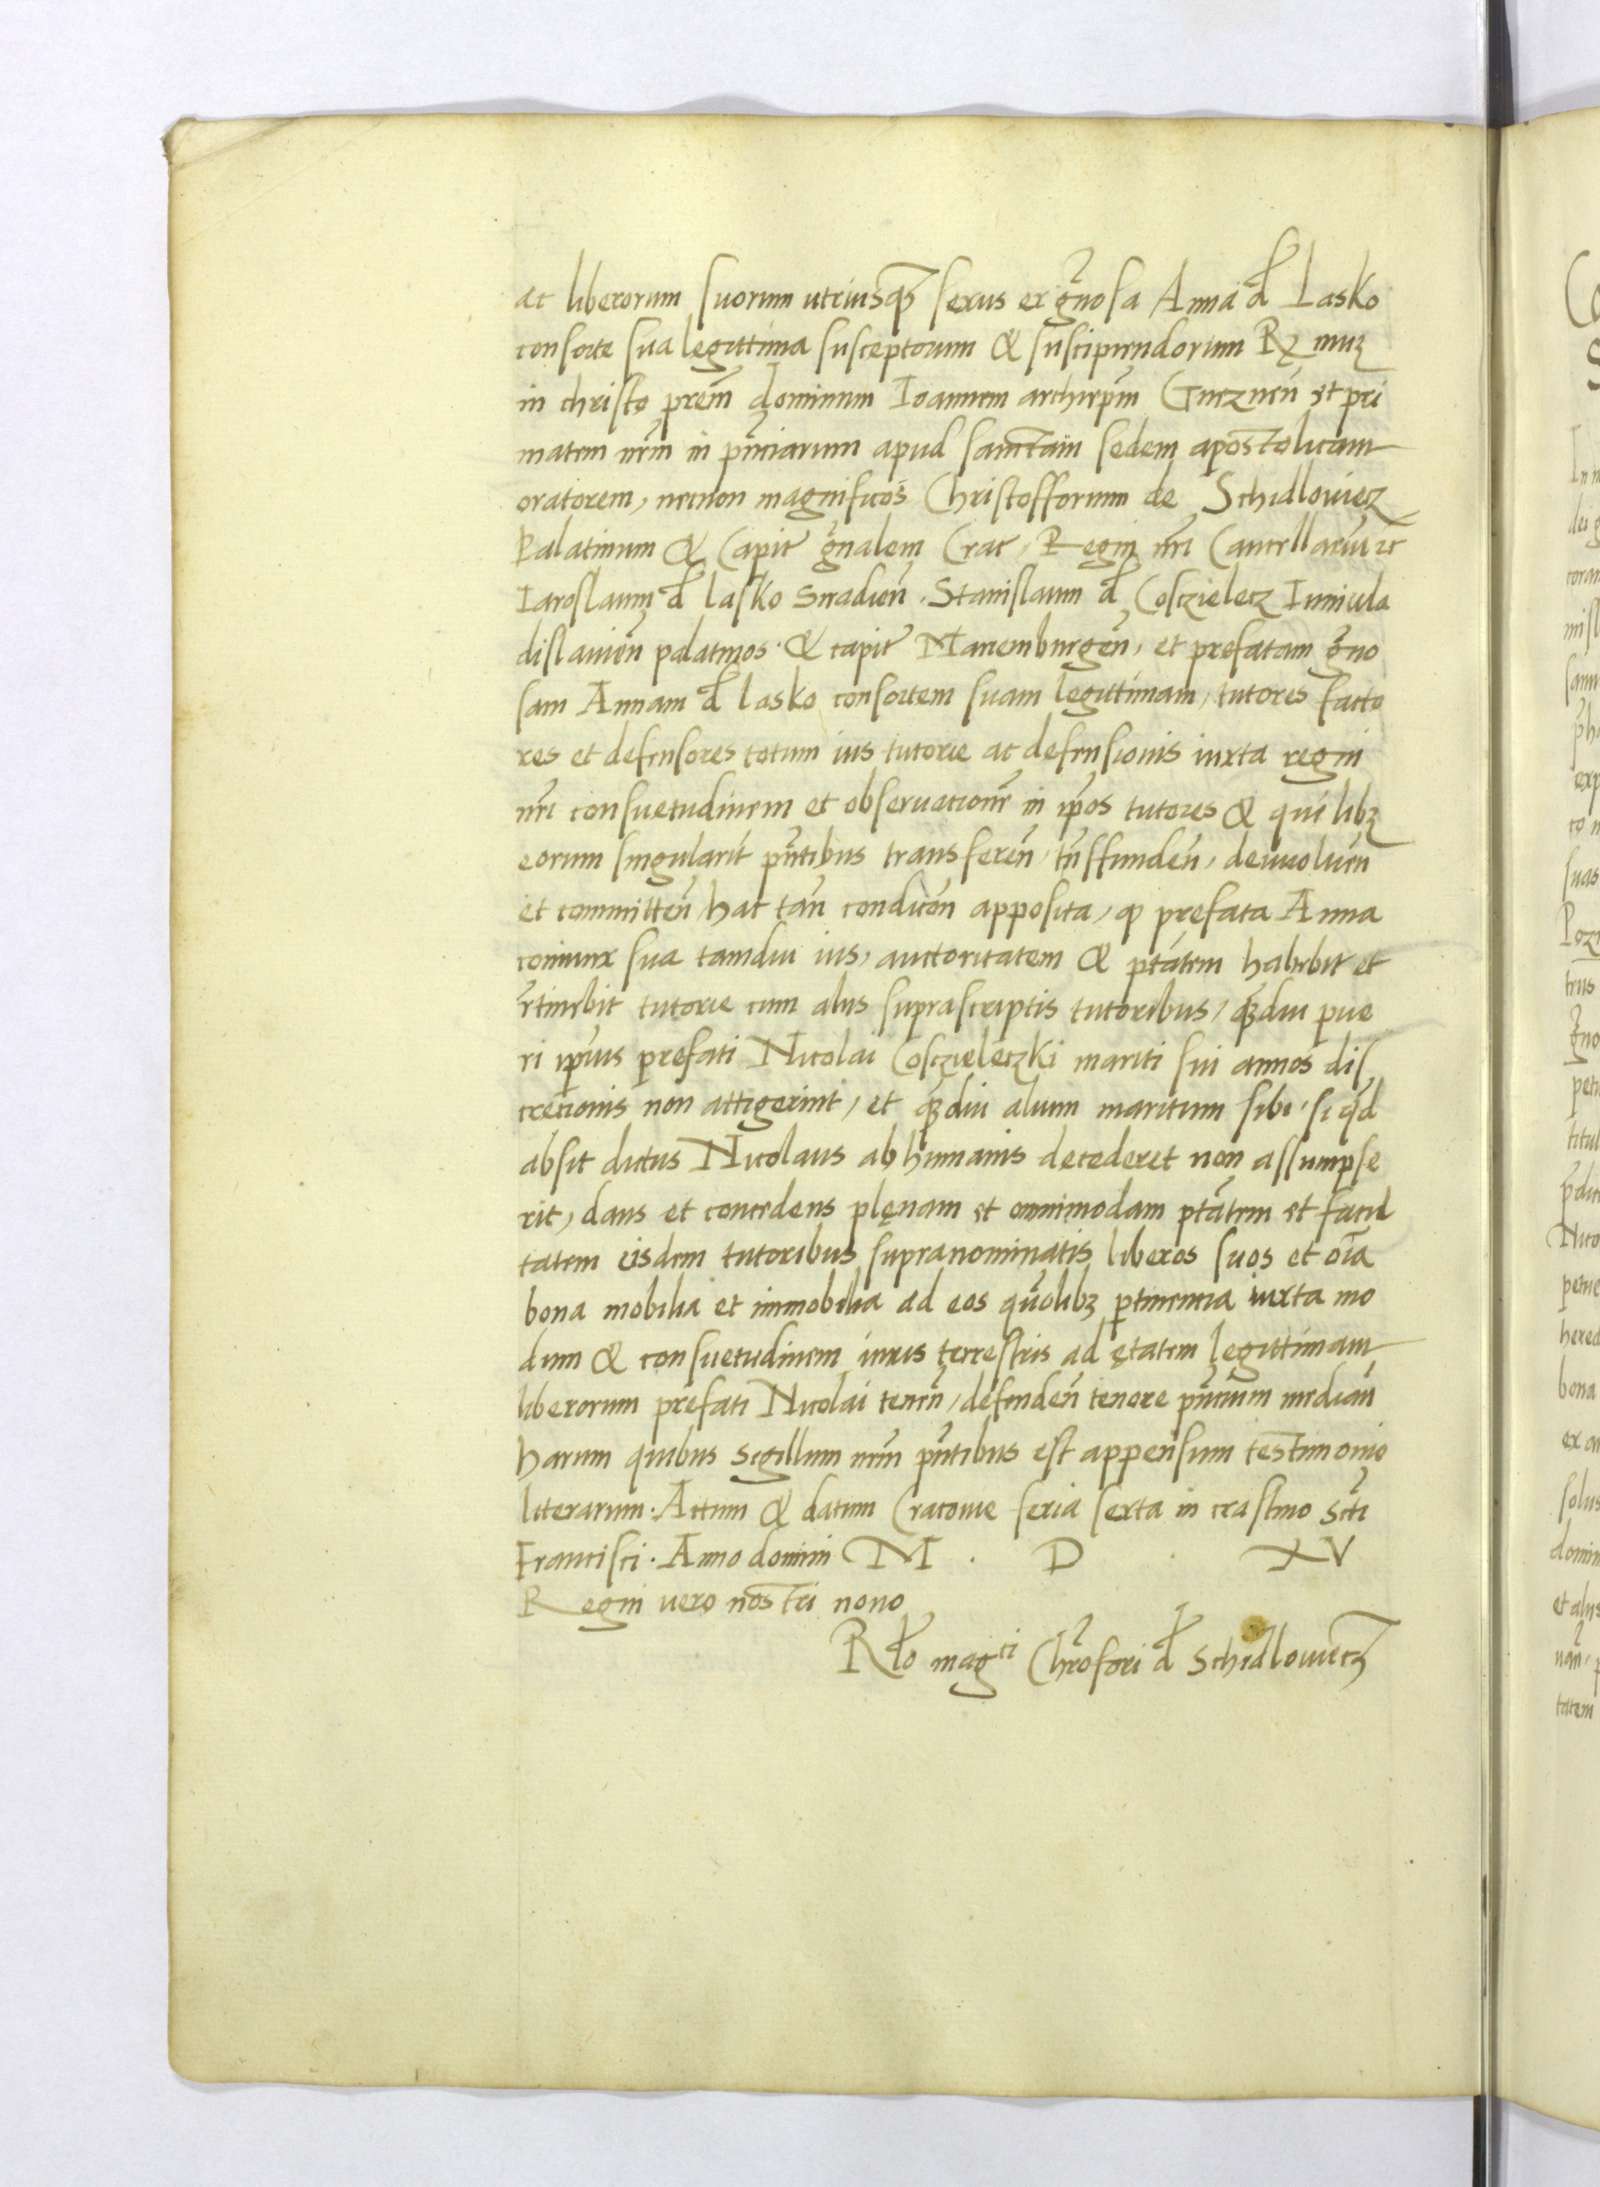 ac liberorum suorum utriusq₃ sexus ex gn̄osa Anna d̄ Lasko
consorte sua legittima susceptorum & suscipiendorum R₃ muꝫ
in christo prem̄ dominum Ioannem archiepm̄ Gneznen̄ et pri
matem nrm̄ in pn̄ciarum apud sanctam sedem apostolicam
oratorem, necnon magnificos Christofforum de Schidlowiecz
Palatinum & Capit gn̄alem Crac, Regni nr̄i Cancellariū ꝛc
Iaroslaum d̄ lasko Siradien̄. Stanislaum d̄ Cosczielecz Iuniula
dislauien̄ palatinos & capit Mariemburgen̄, et prefatam gn̄o
sam Annam d̄ lasko consortem suam legittimam, tutores facto
res et defensores totum ius tutorie ac defensionis iuxta regni
nr̄i consuetudinem et obseruationē in ip̄os tutores & qui libꝫ
eorum singularit̄ pn̄tibus transferen̄, trn̄sfunden̄, deuuoluen̄
et committen̄, hac tan̄ condicōn apposita, ꝙ prefata Anna
coniunx sua tamdiu ius, auctoritatem & ptātem habebit et
r̄tinebit tutorie cum aliis suprascriptis tutoribus, qꝫdiu pue
ri ip̄ius prefati Nicolai Cosczieleczki mariti sui annos dis
crecionis non attigerint, et qꝫdiu alium maritum sibi, si qd̄
absit dictus Nicolaus ab humanis decederet non assumpse
rit, dans et concedens plęnam et omnimodam ptātem et facul
tatem eisdem tutoribus supranominatis liberos suos et oīa
bona mobilia et immobilia ad eos quōlibꝫ ꝑtinentia iuxta mo
dum & consuetudinem iuris terrestris ad ętatem legittimam
liberorum prefati Nicolai tenen̄, defenden̄ tenore pn̄cium median̄
harum quibus sigillum nrm̄ pn̄tibus est appensum testimonio
literarum. Actum & datum Cracouie feria sexta in crastino Scti
Francisci. Anno domini M . D . XV
Regni vero nostri nono
Rl̄o magci Chr̄ofori d̄ Schidlowiecꝫ